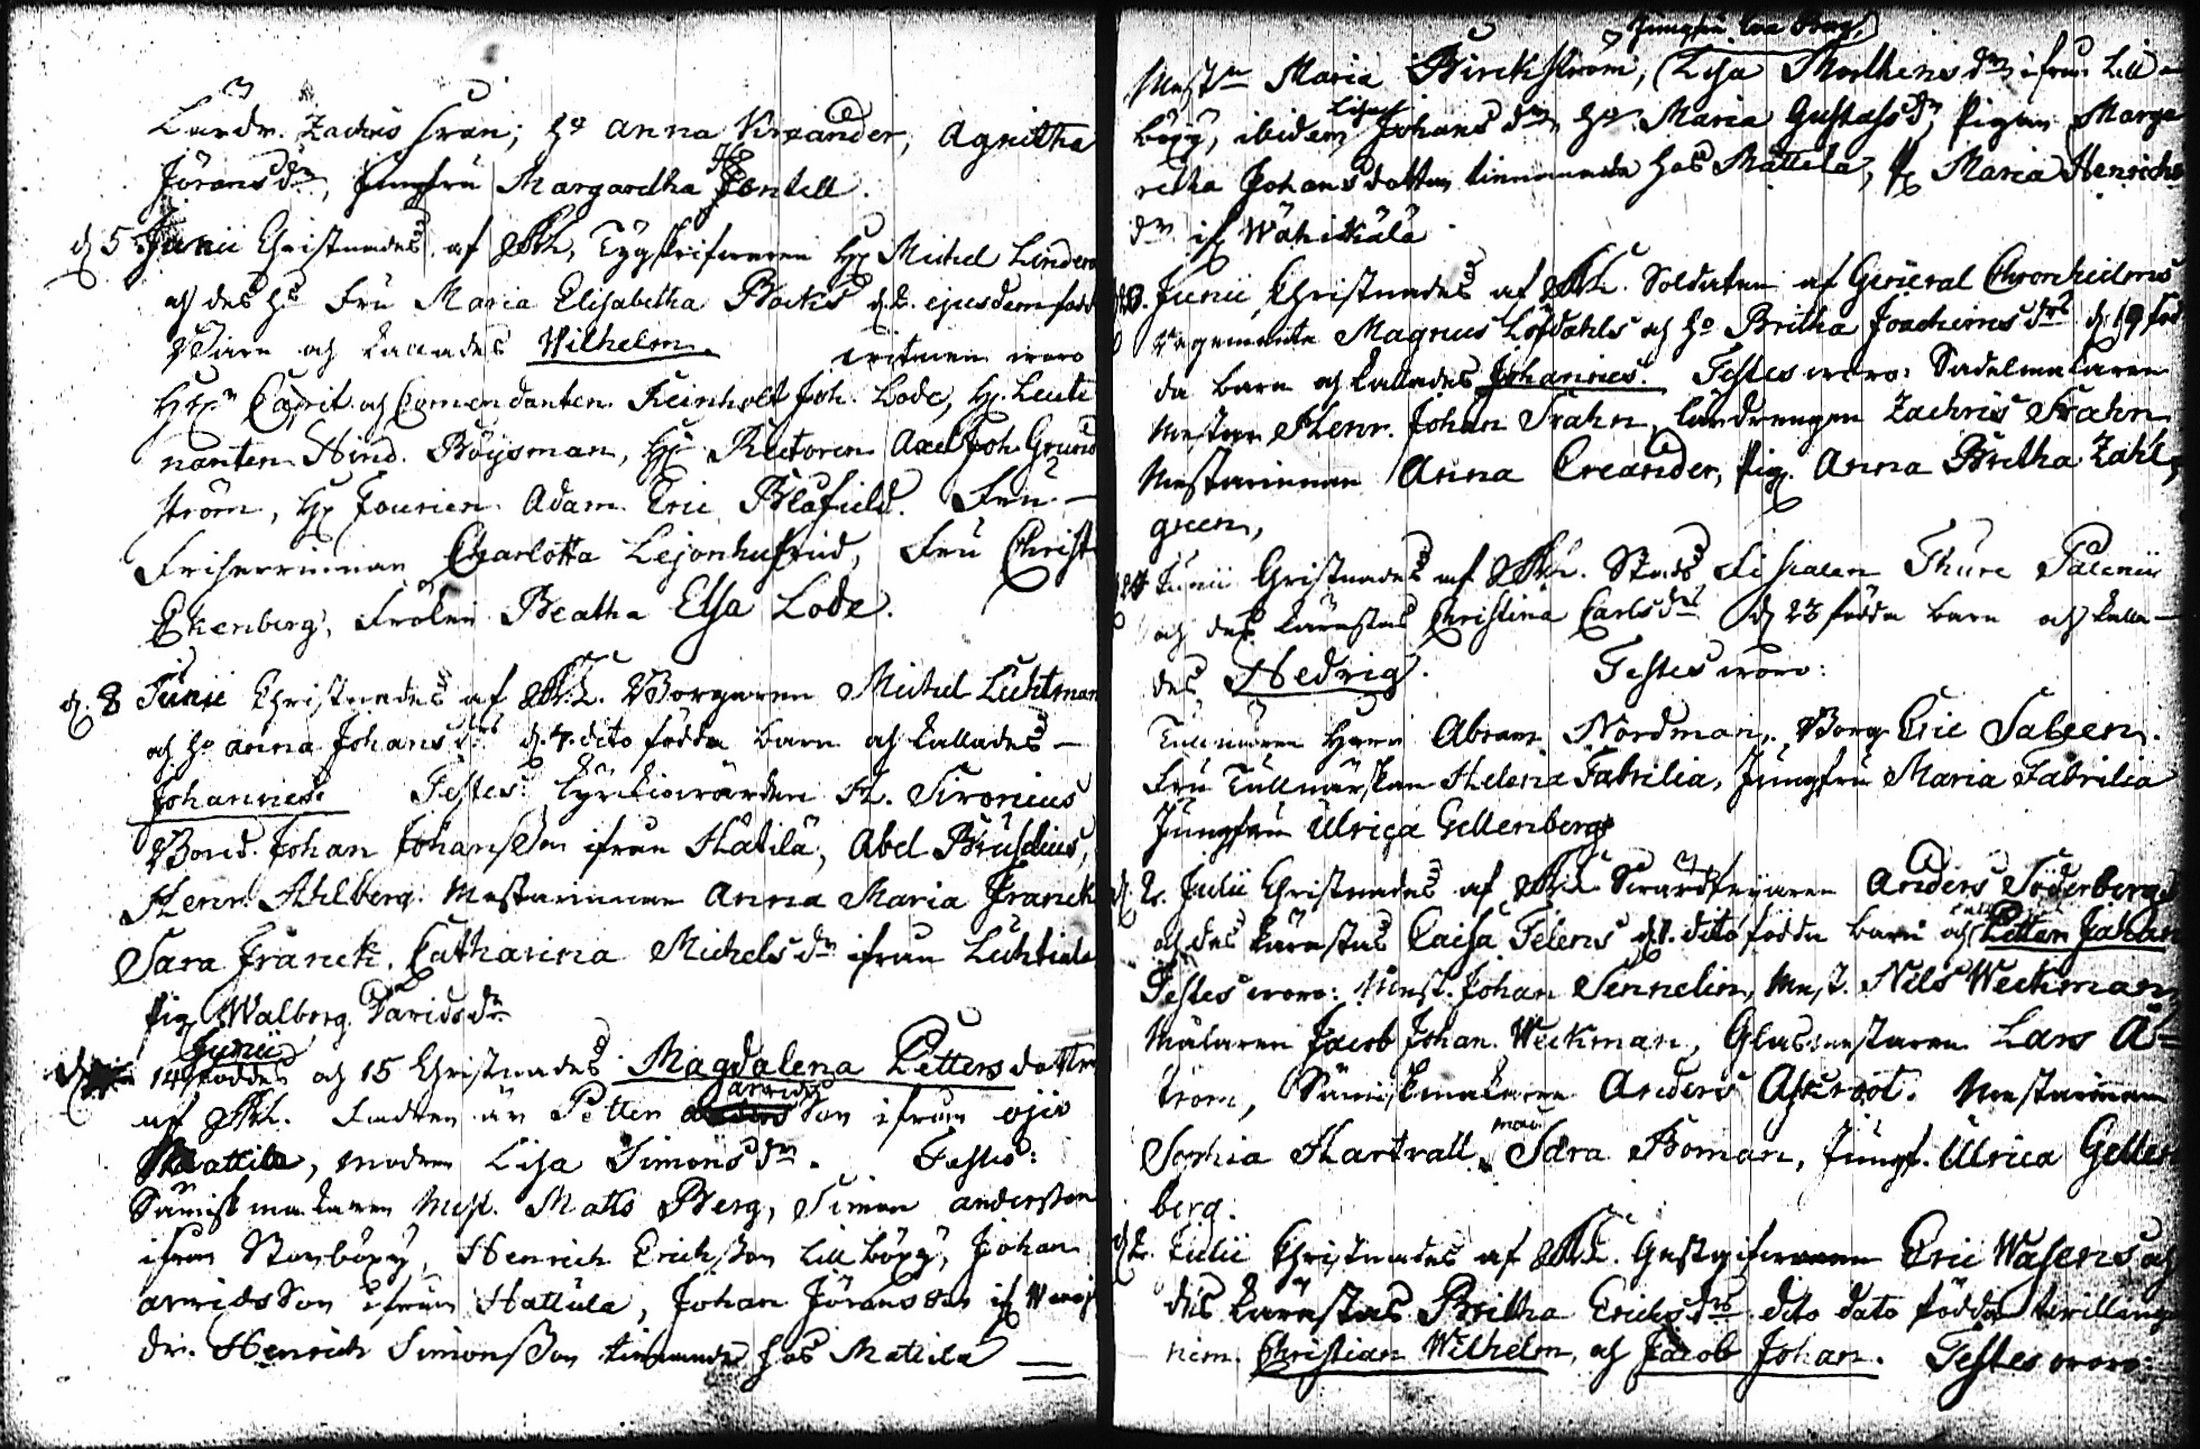 Landr. Zachris Fran; h:o Anna Kreander, Agnetha
Jörans d:r, Jungfru Margaretha Fontell.
d. 5 Junii Christnades af Tygskrifvaren H:r Michel Linders
och des h:s Fru Maria Elisabetha Bocks d. 2. ejusdem födde
Barn och kallades Wilhelm. witnen woro
och Comendanten Reinholt Joh. Lode, H:r Leute
nanten Hind. Böysman, H:r Rectoren Axel Joh. Grund
ström, H:r Fourien Adam Eric Blåfield. Fru
Friherrinnan Charlotta Lejonhufvud, Fru Christ
Ekenberg, Fröken Beatha Elsa Lode.
d. 8 Junii Christnades af Borgaren Michel Luhtman
och h:o Anna Johans d:rs d. 4. dito födda barn och kallades
Johannes. Testes: Kyrkiowärden H. Sironius
Bond. Johan Johansson ifrån Hätilä, Abel Bruselius,
Henr. Ahlberg. Mestarinnan Anna Maria Franck
Sara Franck, Catharina Michels d:r ifrån Luhtiala
pig. Walborg Davids d:r
Junii
14 föddes och 15 Christnades Magdalena Petters dotter
arvids
af Fadren är Petter son ifrån ojis
Mattila, modren Lisa Simons d:r. Testes:
Sämiskmakaren Mest. Matts Berg, Simon andersson
ifrån Storlöpy, Henrich Erichsson Lill Löpy, Johan
arvidsson ifrån Hattula, Johan Jöransson if
dr. Henrich Simonsson tienande hos Mattila
Jungfru Eva Berg,
Mest:n Maria Birckström, Lisa Marthens d:r ifrån Lill
Lisa
löpy, ibidem Johans d:r, h:o Maria Gustafs d:r, pigan Marga
retha Johans dotter tienande hos Mattila, p. Maria Henrichs
d:r if Wähikkälä
Junii Christnades af Soldaten af General Cronhielms
regemente Magnus Löfdahls och h:o Britha Joachims d:rs d. 19 föd
da barn och kallades Johannes. Testes woro: Sadelmakaren
Mestar Henr. Johan Frahn, landrengen Zachris Frahn
Mestarinnan Anna Creander, pig. Anna Britha Zahl
green,
24 Junii Christnades af Stads Fiscalen Thure Palenii
och des kärestas Christina Carls d:rs d. 23 födda barn och kalla
des Hedvig. Testes woro:
Tullnären Herr Abram Nordman, Borg. Eric Saleen.
Fru Tullnärskan Helena Fabrilia, Jungfru Maria Fabrilia
Jungfru Ulrica Gellenberg
d. 2. Julii Christnades af Swärdfejaren Anders Söderbergs
och des kärestas Caisa Telens d. 1. dito födda barn och Petter Johan
Testes woro: Mest. Johan Sennelin, Mest. Nils Weckman,
Målaren Jacob Johan Weckman, Glasmestaren Lars Å=
ström, Sämiskmakaren Anders Mestarinnan
Sophia Hartvall, Sara Boman, Jungf. Ulrica Gellen
berg.
d. 2. Julii Christnades af Gestgifvaren Eric Wasens och
des kärestas Britha Erichs d:rs dito dato födda twillinga
nem. Christian Wilhelm, och Jacob Johan. Testes woro: